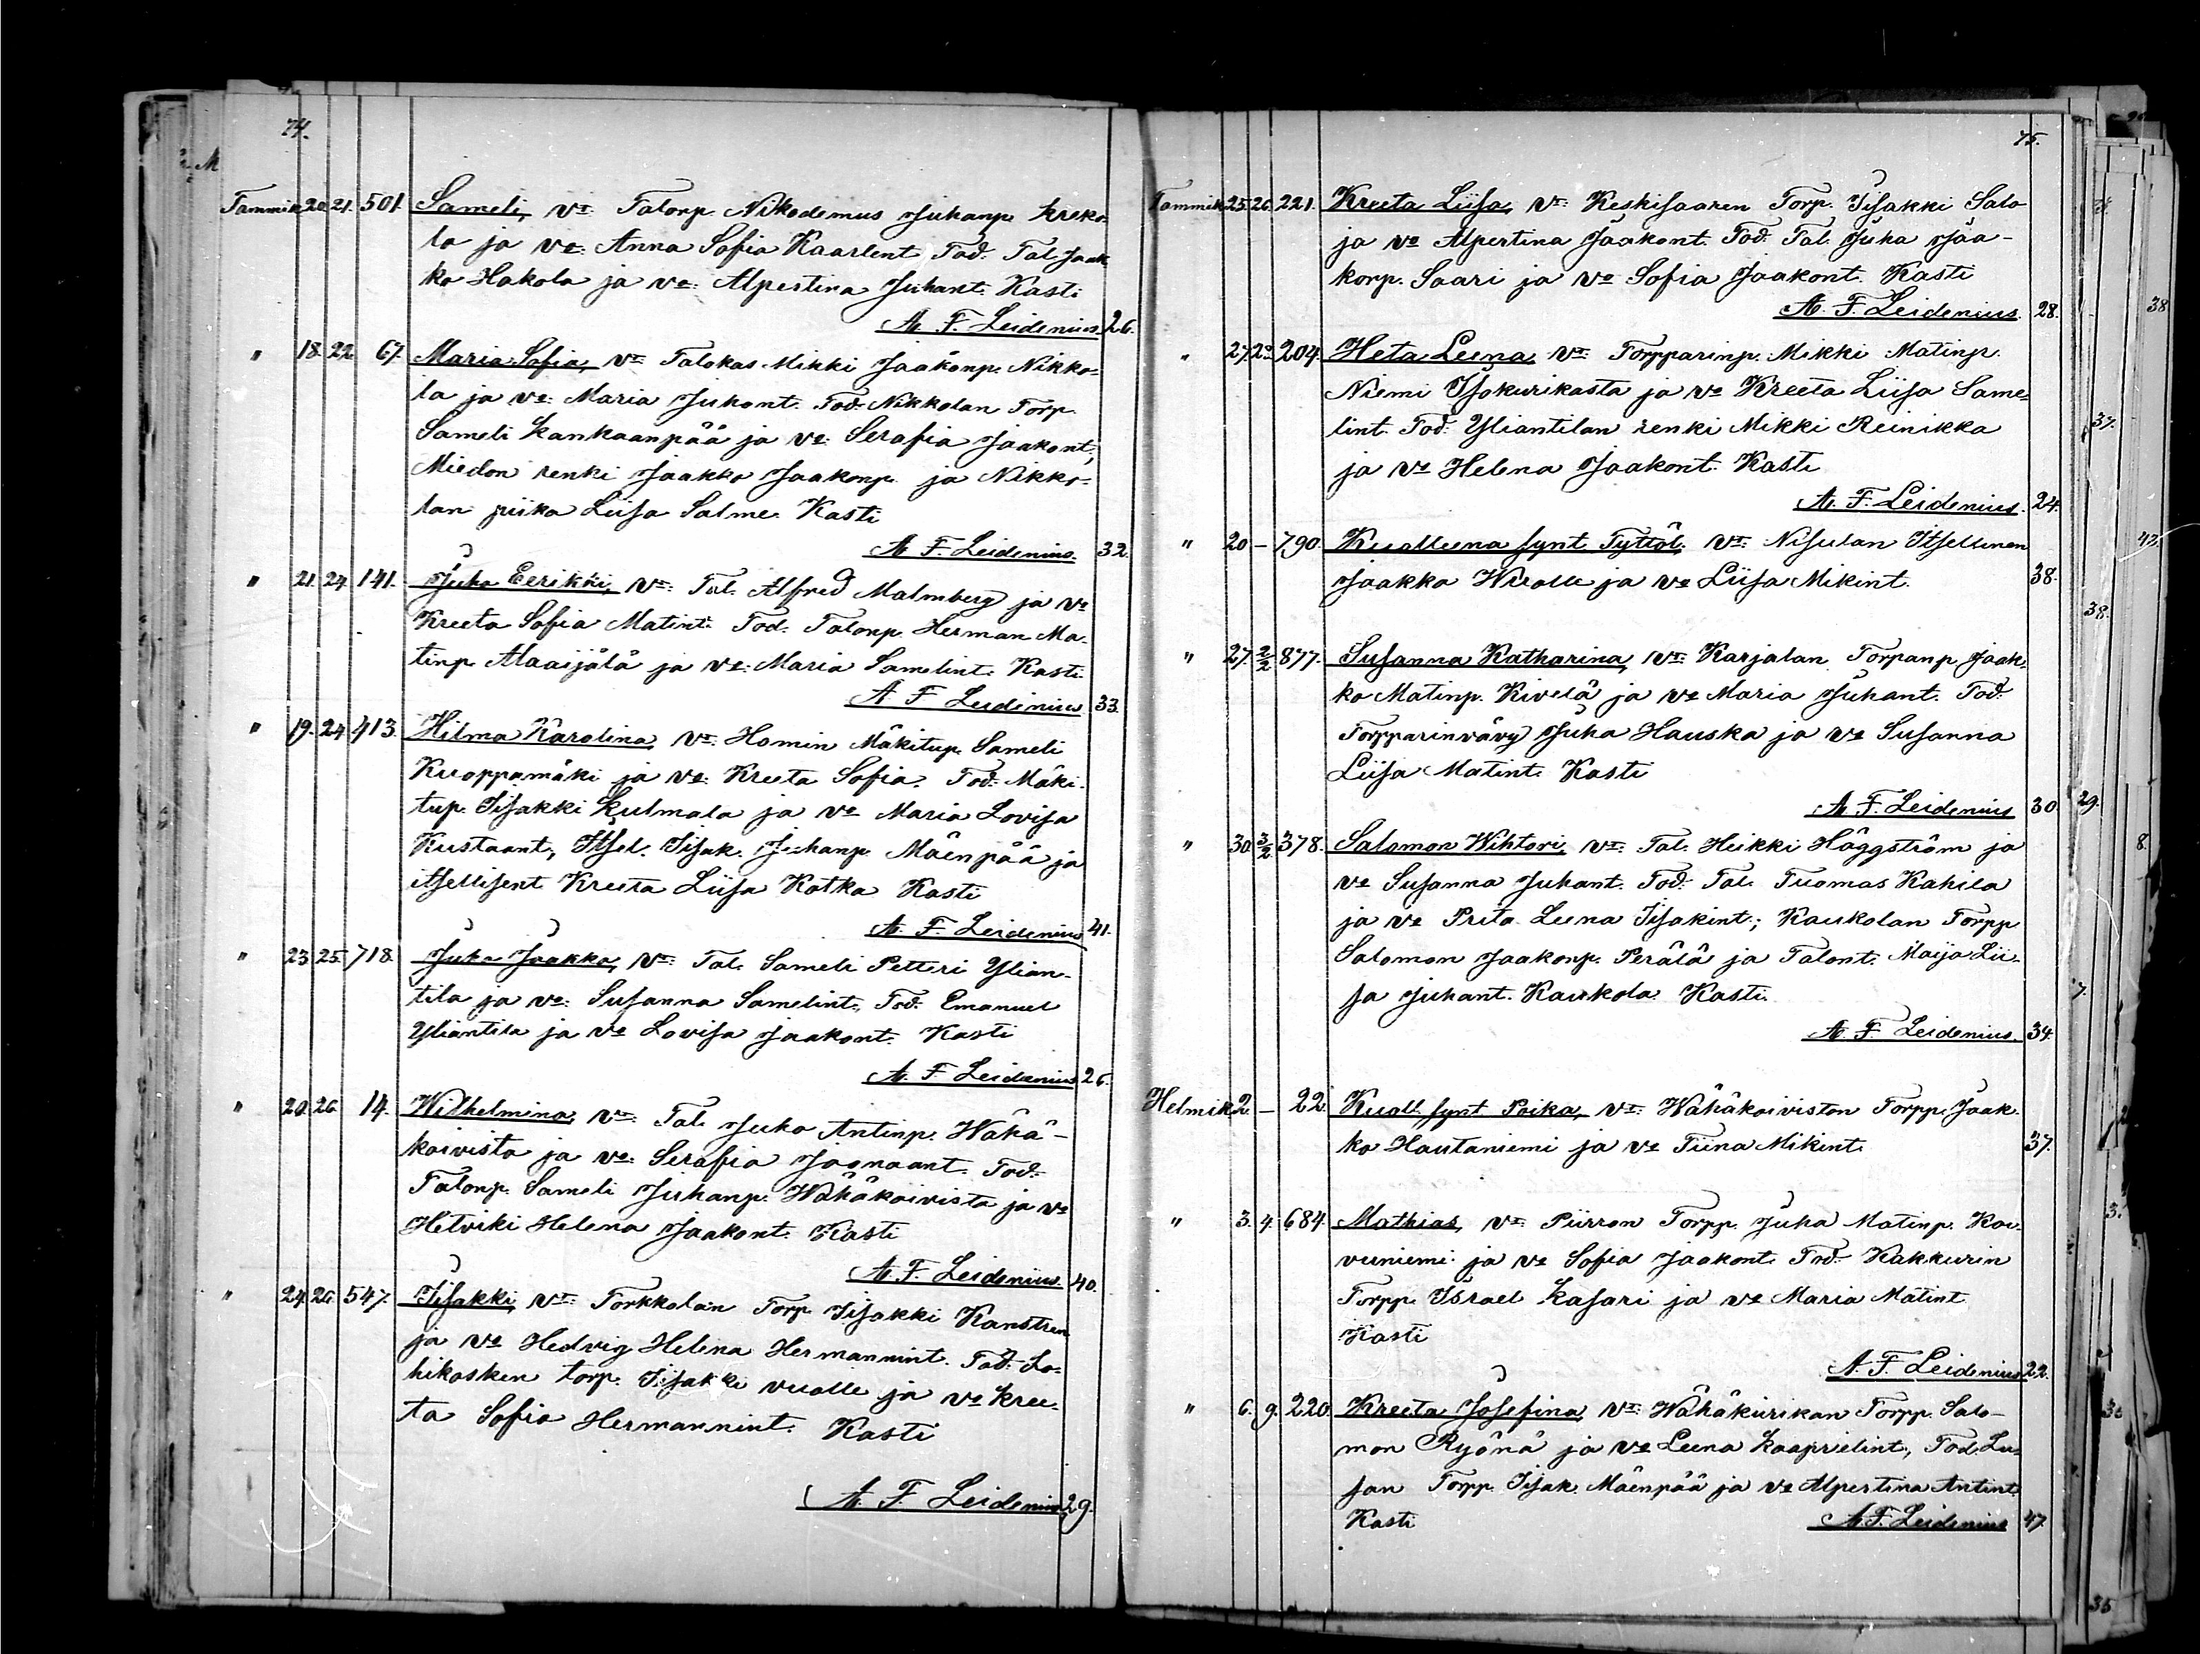 74.
Tammik. 20. 21. 501. Sameli, vt: Talonp. Nikodemus Juhanp. Kreko-
la ja vo: Anna Sofia Kaarlent. Tod: Tal. Jaak
ko Hakola ja vo: Alpertina Juhant. Kasti
A. F. Leidenius. 26.
" 18. 22. 67. Maria Sofia, vt: Talokas Mikki Jaakonp. Nikko-
la ja vo: Maria Juhont. Tod: Nikkolan Torp.
Sameli Kankaanpää ja vo: Serafia Jaakont.,
Miedon renki Jaakko Jaakonp. ja Nikko-
lan piika Liisa Salme. Kasti
A. F. Leidenius. 32.
" 21. 24. 141. Juho Eerikki, vt: Tal. Alfred Malmberg ja vo
Kreeta Sofia Matint. Tod: Talonp. Herman Ma-
tinp. Alaaijälä ja vo: Maria Samelint. Kasti
A. F. Leidenius 33.
" 19. 24. 413. Hilma Karolina, vt: Homin Mäkitup. Sameli
Kuoppamäki ja vo: Kreeta Sofia. Tod: Mäki-
tup. Iisakki Kulmala ja vo Maria Lovisa
Kustaant., Itsel. Iisak. Juhanp. Mäenpää ja
itsellisent Kreeta Liisa Katka Kasti
A. F. Leidenius 41.
" 23. 25. 718. Juho Jaakko, vt: Tal. Sameli Petteri Ylian-
tila ja vo: Susanna Samelint., Tod: Emanuel
Yliantila ja vo Lovisa Jaakont. Kasti
A. F. Leidenius 26.
" 20. 26. 14. Wilhelmina, vt: Tal. Juho Antinp. Wähä-
koivisto ja vo: Serafia Joonaant. Tod:
Talonp. Sameli Juhanp. Wähäkoivisto ja vo
Hetviki Helena Jaakont. Kasti
A. F. Leidenius. 40.
" 24. 26. 547. Iisakki, vt: Torkkolan Torp Iisakki Kanstren
ja vo Hedvig Helena Hermannint. Tod: Lo-
hikosken torp. Iisakki Vuolle ja vo Kree-
ta Sofia Hermannint. Kasti
A. F. Leidenius 29.
75.
Tammik. 25. 26. 221. Kreeta Liisa, vt: Keskisaaren Torp. Iisakki Salo
ja vo Alpertina Jaakont. Tod: Tal. Juha Jaa-
korp. Saari ja vo Sofia Jaakont. Kasti
A. F. Leidenius. 28.
" 27. 204. Heta Leena, vt: Torpparinp. Mikki Matinp.
Niemi Isokurikasta ja vo Kreeta Liisa Same-
lint. Tod: Yliantilan renki Mikki Reinikka
ja vo Helena Jaakont. Kasti
A. F. Leidenius. 24.
" 20 - 790. Kuolleena synt. Tyttöl. vt: Nisulan Itsellinen
Jaakko Wuolle ja vo Liisa Mikint. 38.
" 27. 2/2 877. Susanna Katharina, vt: Karjalan Torpanp. Jaak-
ko Matinp. Kivelä ja vo Maria Juhant. Tod:
Torpparinvävy Juha Hauska ja vo Susanna
Liisa Matint. Kasti
A. F. Leidenius 30
" 30. 3/2 378. Salomon Wihtori, vt: Tal. Heikki Häggström ja
vo Susanna Juhant. Tod: Tal. Tuomas Kahila
ja vo Prita Leena Iisakint.; Kaukolan Torpp.
Salomon Jaakonp. Perälä ja Talont. Maija Lii-
sa Juhant. Kaukola. Kasti.
A. F. Leidenius. 34.
Helmik. 2 - 22. Kuoll. synt. Poika, vt: Wähäkoiviston Torpp. Jaak-
ko Hautaniemi ja vo Tiina Mikint. 37.
" 3. 4. 684. Mathias, vt: Piirron Torpp. Juha Matinp. Koi-
vuniemi ja vo Sofia Jaakont. Tod: Kakkurin
Torpp. Israel Kasari ja vo Maria Matint
Kasti
A. F. Leidenius 22.
" 6. 9. 220. Kreeta Josefina, vt: Wähäkurikan Torpp. Salo-
mon Ryönä ja vo Leena Kaaprielint., Tod. Lu-
san Torpp. Iisak. Mäenpää ja vo Alpertina Antint.
Kasti A. F. Leidenius 47.